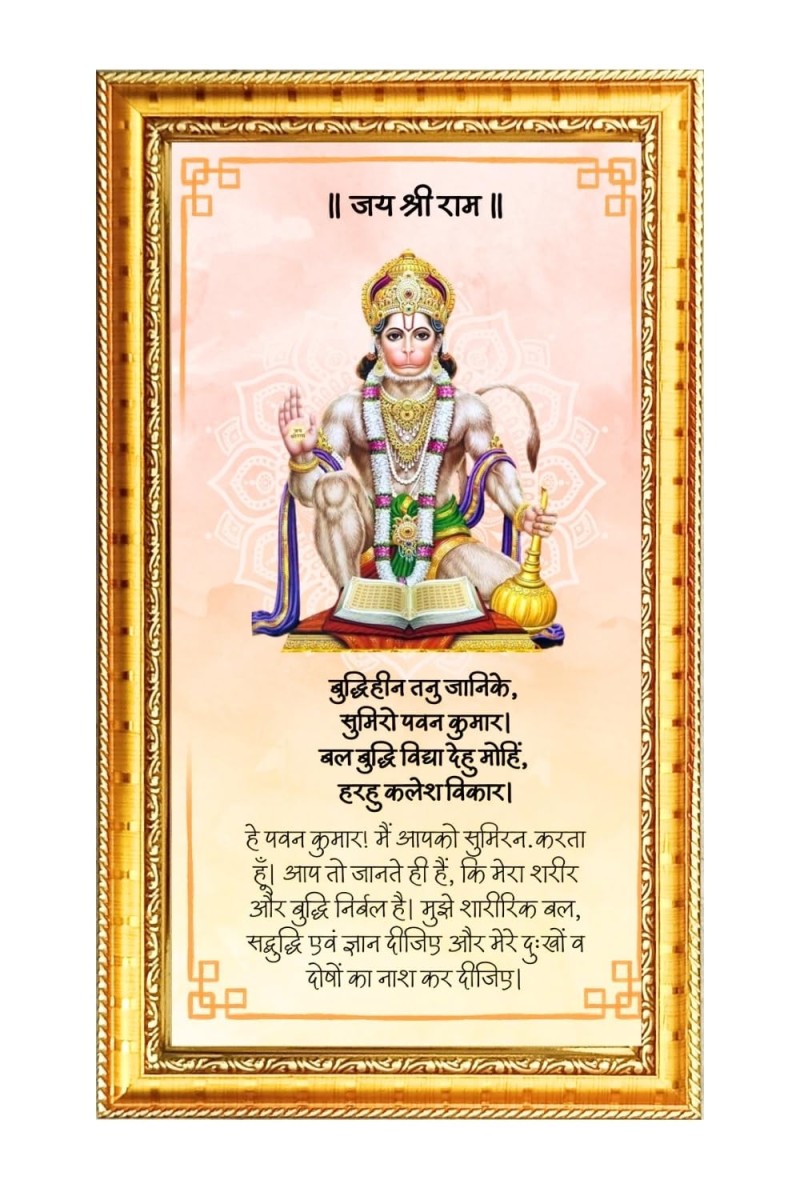 ॥ जय श्री राम ॥
बुद्धिहीन तनु जानिके,
सुमिरो पवन कुमार।
बल बुद्धि विद्या देहु मोहिं,
हरहु कलेश विकार।
हे पवन कुमार! मैं आपको सुमिरन.करता
हूँ। आप तो जानते ही हैं, कि मेरा शरीर
और बुद्धि निर्बल है। मुझे शारीरिक बल,
सद्बुद्धि एवं ज्ञान दीजिए और मेरे दुःखों व
दोषों का नाश कर दीजिए।